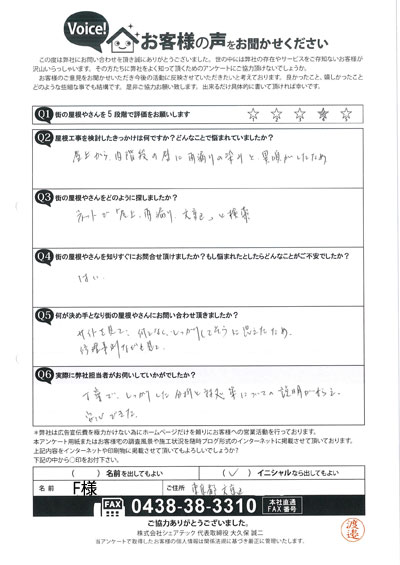 Voice!
お客様の声をお聞かせください
この度は弊社にお問い合わせを頂き誠にありがとうございました。世の中には弊社の存在やサービスをご存知ないお客様が
沢山いらっしゃいます。その方たちに弊社をよく知って頂くためのアンケートにご協力頂けないでしょうか。
お客様のご意見をお聞かせいただき今後の活動に反映させていただきたいと考えております。良かったこと、嬉しかったこと
どのような些細な事でも結構です。是非ご協力お願い致します。出来るだけ具体的に書いて頂ければ幸いです。
Q1 街の屋根やさんを5段階で評価をお願いします
☆ ☆ ☆ ☆ ☆
Q2 屋根工事を検討したきっかけは何ですか?どんなことで悩まれていましたか?
屋上から内階段の壁に雨漏りの染みと異臭がしたため
Q3 街の屋根やさんをどのように探しましたか?
ネットで「屋上、雨漏り、」と検索
Q4 街の屋根やさんを知りすぐにお問合せ頂けましたか?もし悩まれたとしたらどんなことがご不安でしたか?
はい
Q5 何が決め手となり街の屋根やさんにお問い合わせ頂きましたか?
サイトを見て、何となく、しっかりしてそうに思えたため。
修理事例なども見て
Q6 実際に弊社担当者がお伺いしていかがでしたか?
丁寧で、しっかりした分析と対処案についての説明が
安心できた。
※弊社は広告宣伝費を極力かけない為にホームページだけを頼りにお客様への営業活動を行っております。
本アンケート用紙またはお客様宅の調査風景や施工状況を随時ブログ形式のインターネットに掲載させて頂いております。
上記内容をインターネットや印刷物に掲載させて頂いてもよろしいでしょうか?
下記の中から○印をお付下さい。
( ) 名前を出してもよい (✓) イニシャルなら出してもよい
名前 F様 ご住所
FAX 0438-38-3310 本社直通 FAX番号
ご協力ありがとうございました。
株式会社シェアテック 代表取締役 大久保 誠二
当アンケートで取得したお客様の個人情報は関係法規に基づき厳正に管理いたします。
渡邉